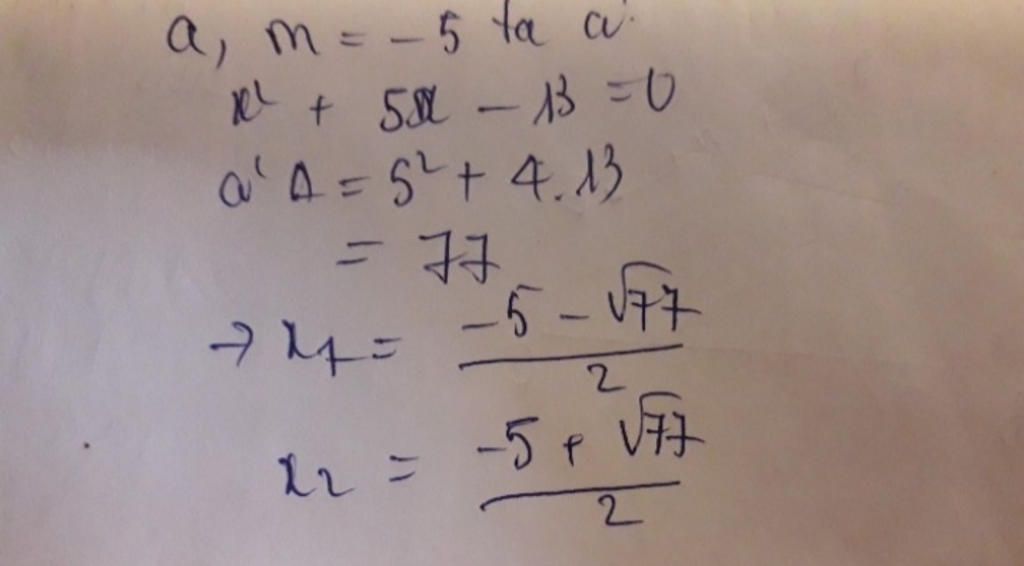 a, m = -5 ta có
x² + 5x - 13 = 0
có Δ = 5² + 4.13
= 77
→ x₁ = (-5 - √77) / 2
x₂ = (-5 + √77) / 2